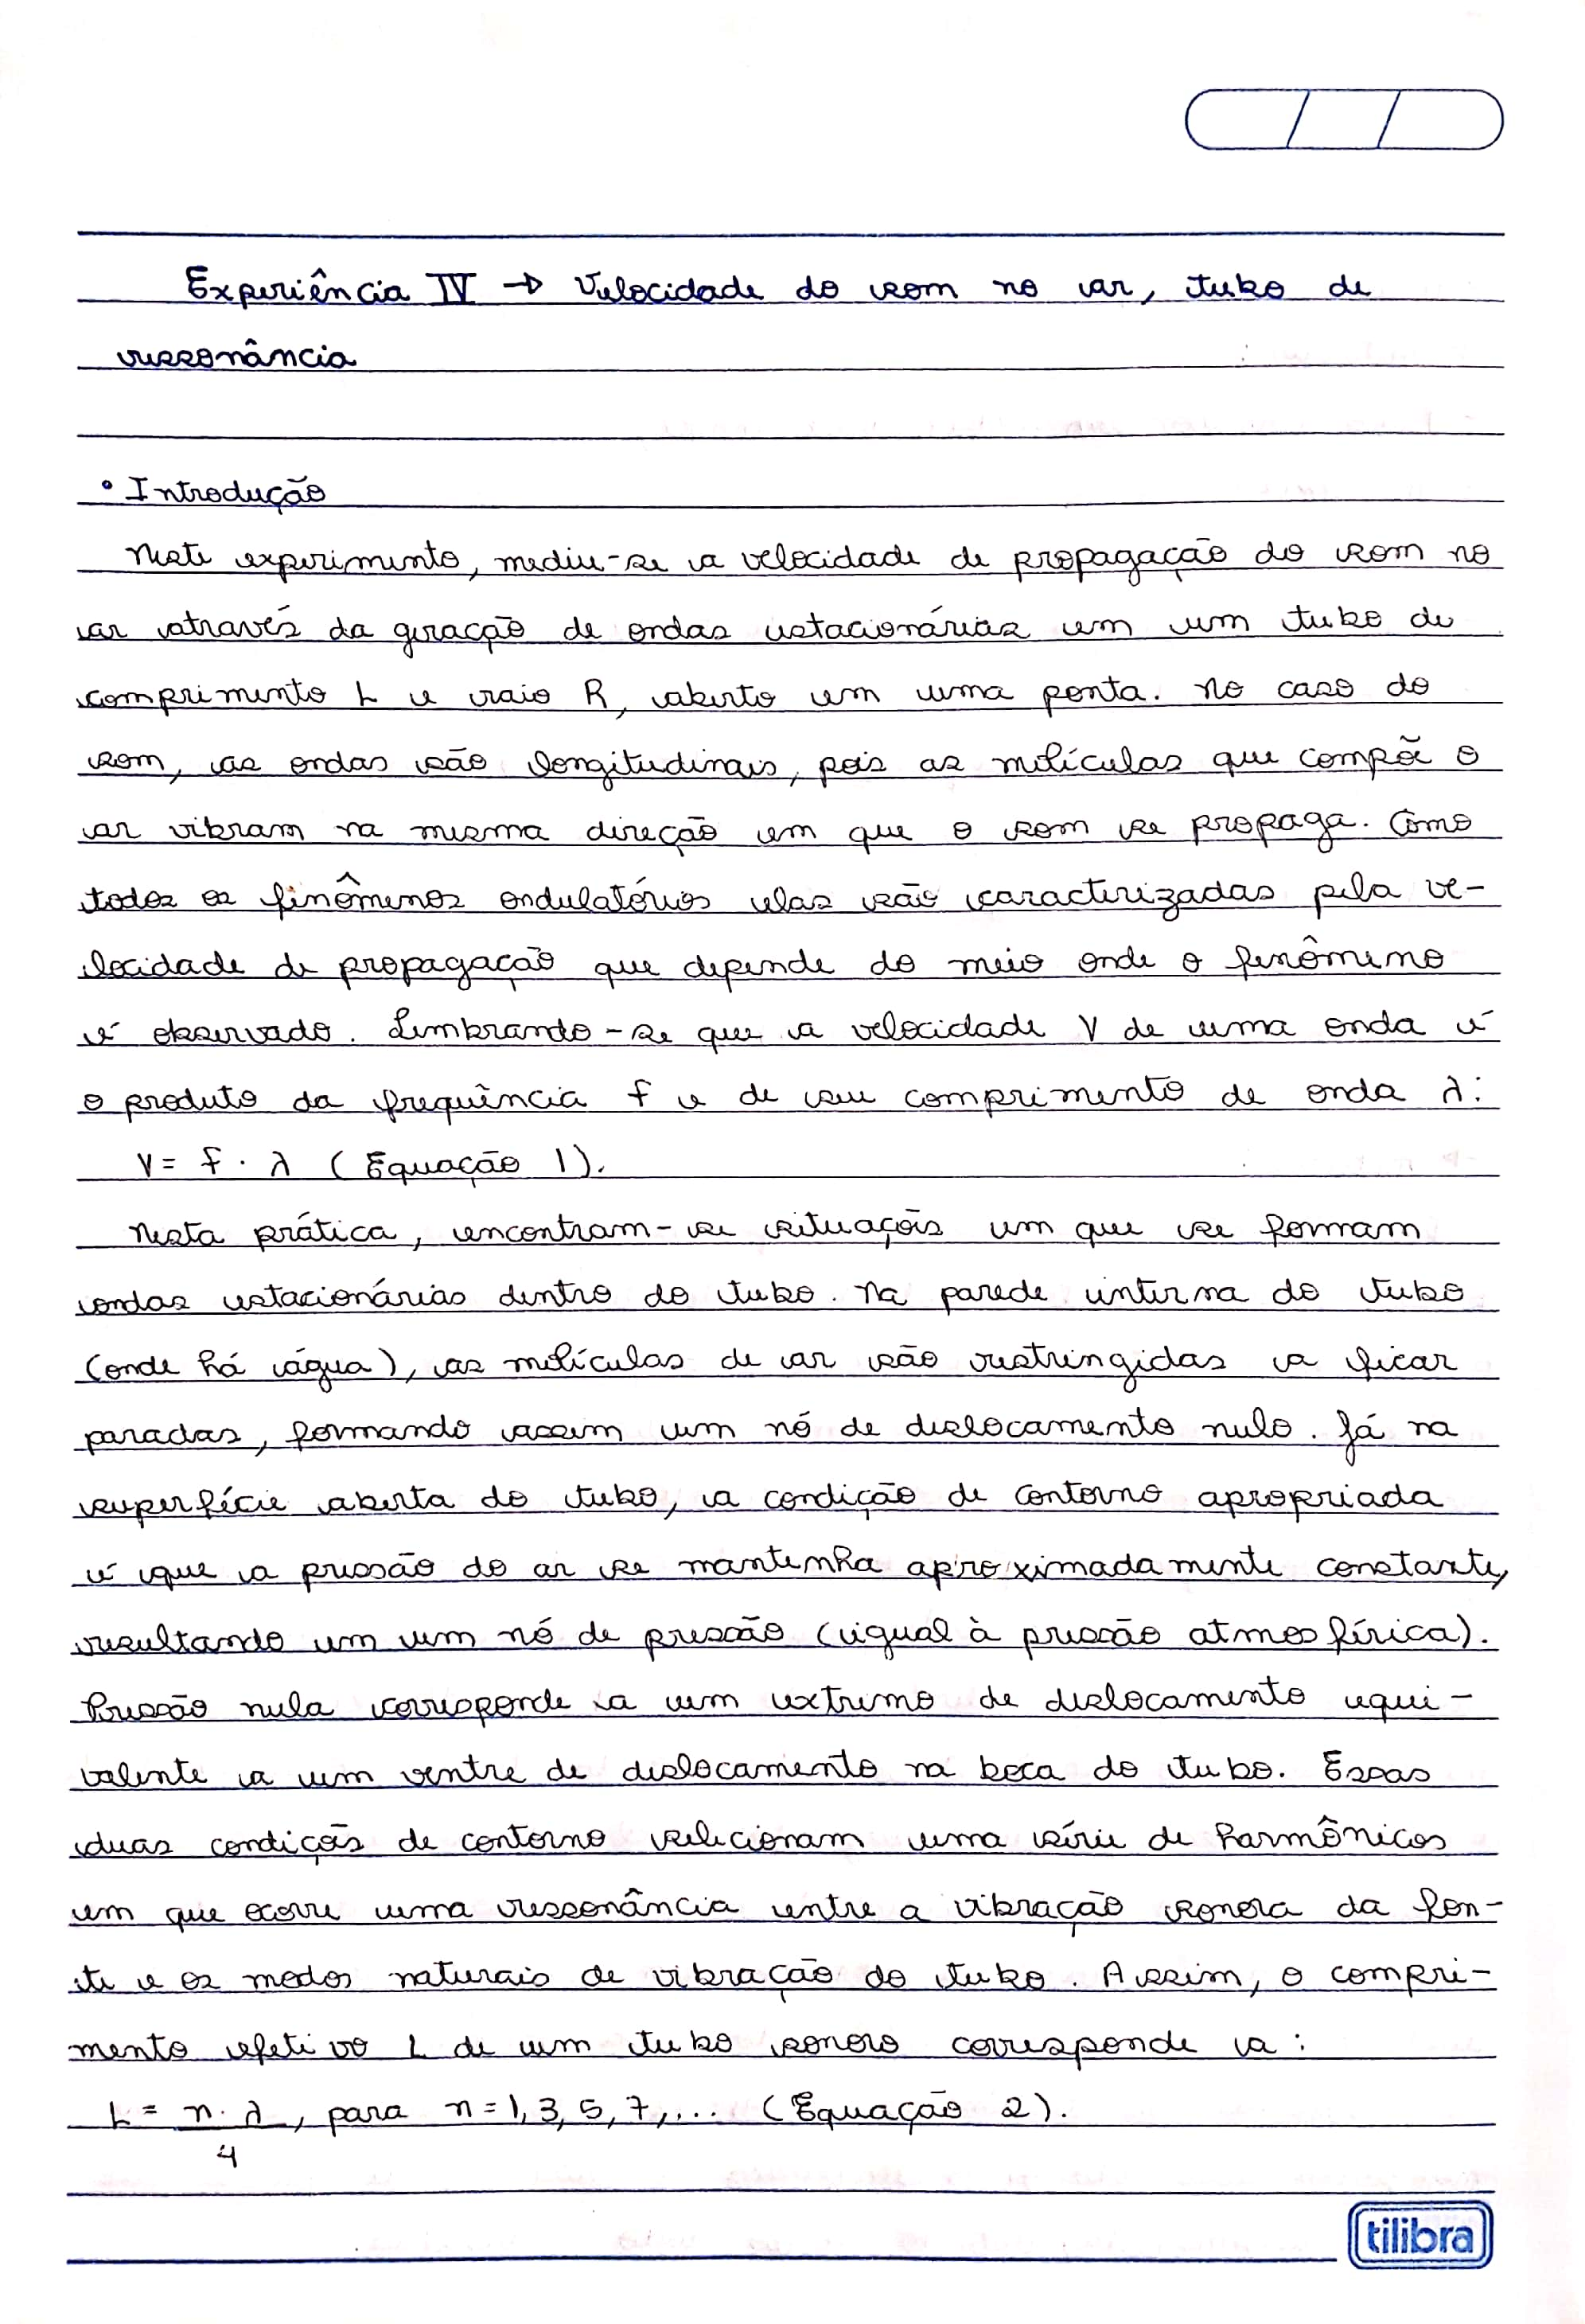 Experiência IV → Velocidade do som no ar, tubo de
ressonância
• Introdução
Neste experimento, mediu-se a velocidade de propagação do som no
ar através da geração de ondas estacionárias em um tubo de
comprimento L e raio R, aberto em uma ponta. No caso do
som, as ondas são longitudinais, pois as moléculas que compõe o
ar vibram na mesma direção em que o som se propaga. Como
todos os fenômenos ondulatórios elas são caracterizadas pela ve-
locidade de propagação que depende do meio onde o fenômeno
é observado. Lembrando-se que a velocidade V de uma onda é
o produto da frequência f e de seu comprimento de onda λ:
V = f · λ (Equação 1).
Nesta prática, encontram-se situações em que se formam
ondas estacionárias dentro do tubo. Na parede interna do tubo
(onde há água), as moléculas de ar são restringidas a ficar
paradas, formando assim um nó de deslocamento nulo. Já na
superfície aberta do tubo, a condição de contorno apropriada
é que a pressão do ar se mantenha aproximadamente constante,
resultando em um nó de pressão (igual à pressão atmosférica).
Pressão nula corresponde a um extremo de deslocamento equi-
valente a um ventre de deslocamento na boca do tubo. Essas
duas condições de contorno selecionam uma série de harmônicos
em que ocorre uma ressonância entre a vibração sonora da fon-
te e os modos naturais de vibração do tubo. Assim, o compri-
mento efetivo L de um tubo sonoro corresponde a:
L = n · λ , para n = 1, 3, 5, 7, ... (Equação 2).
4
tilibra